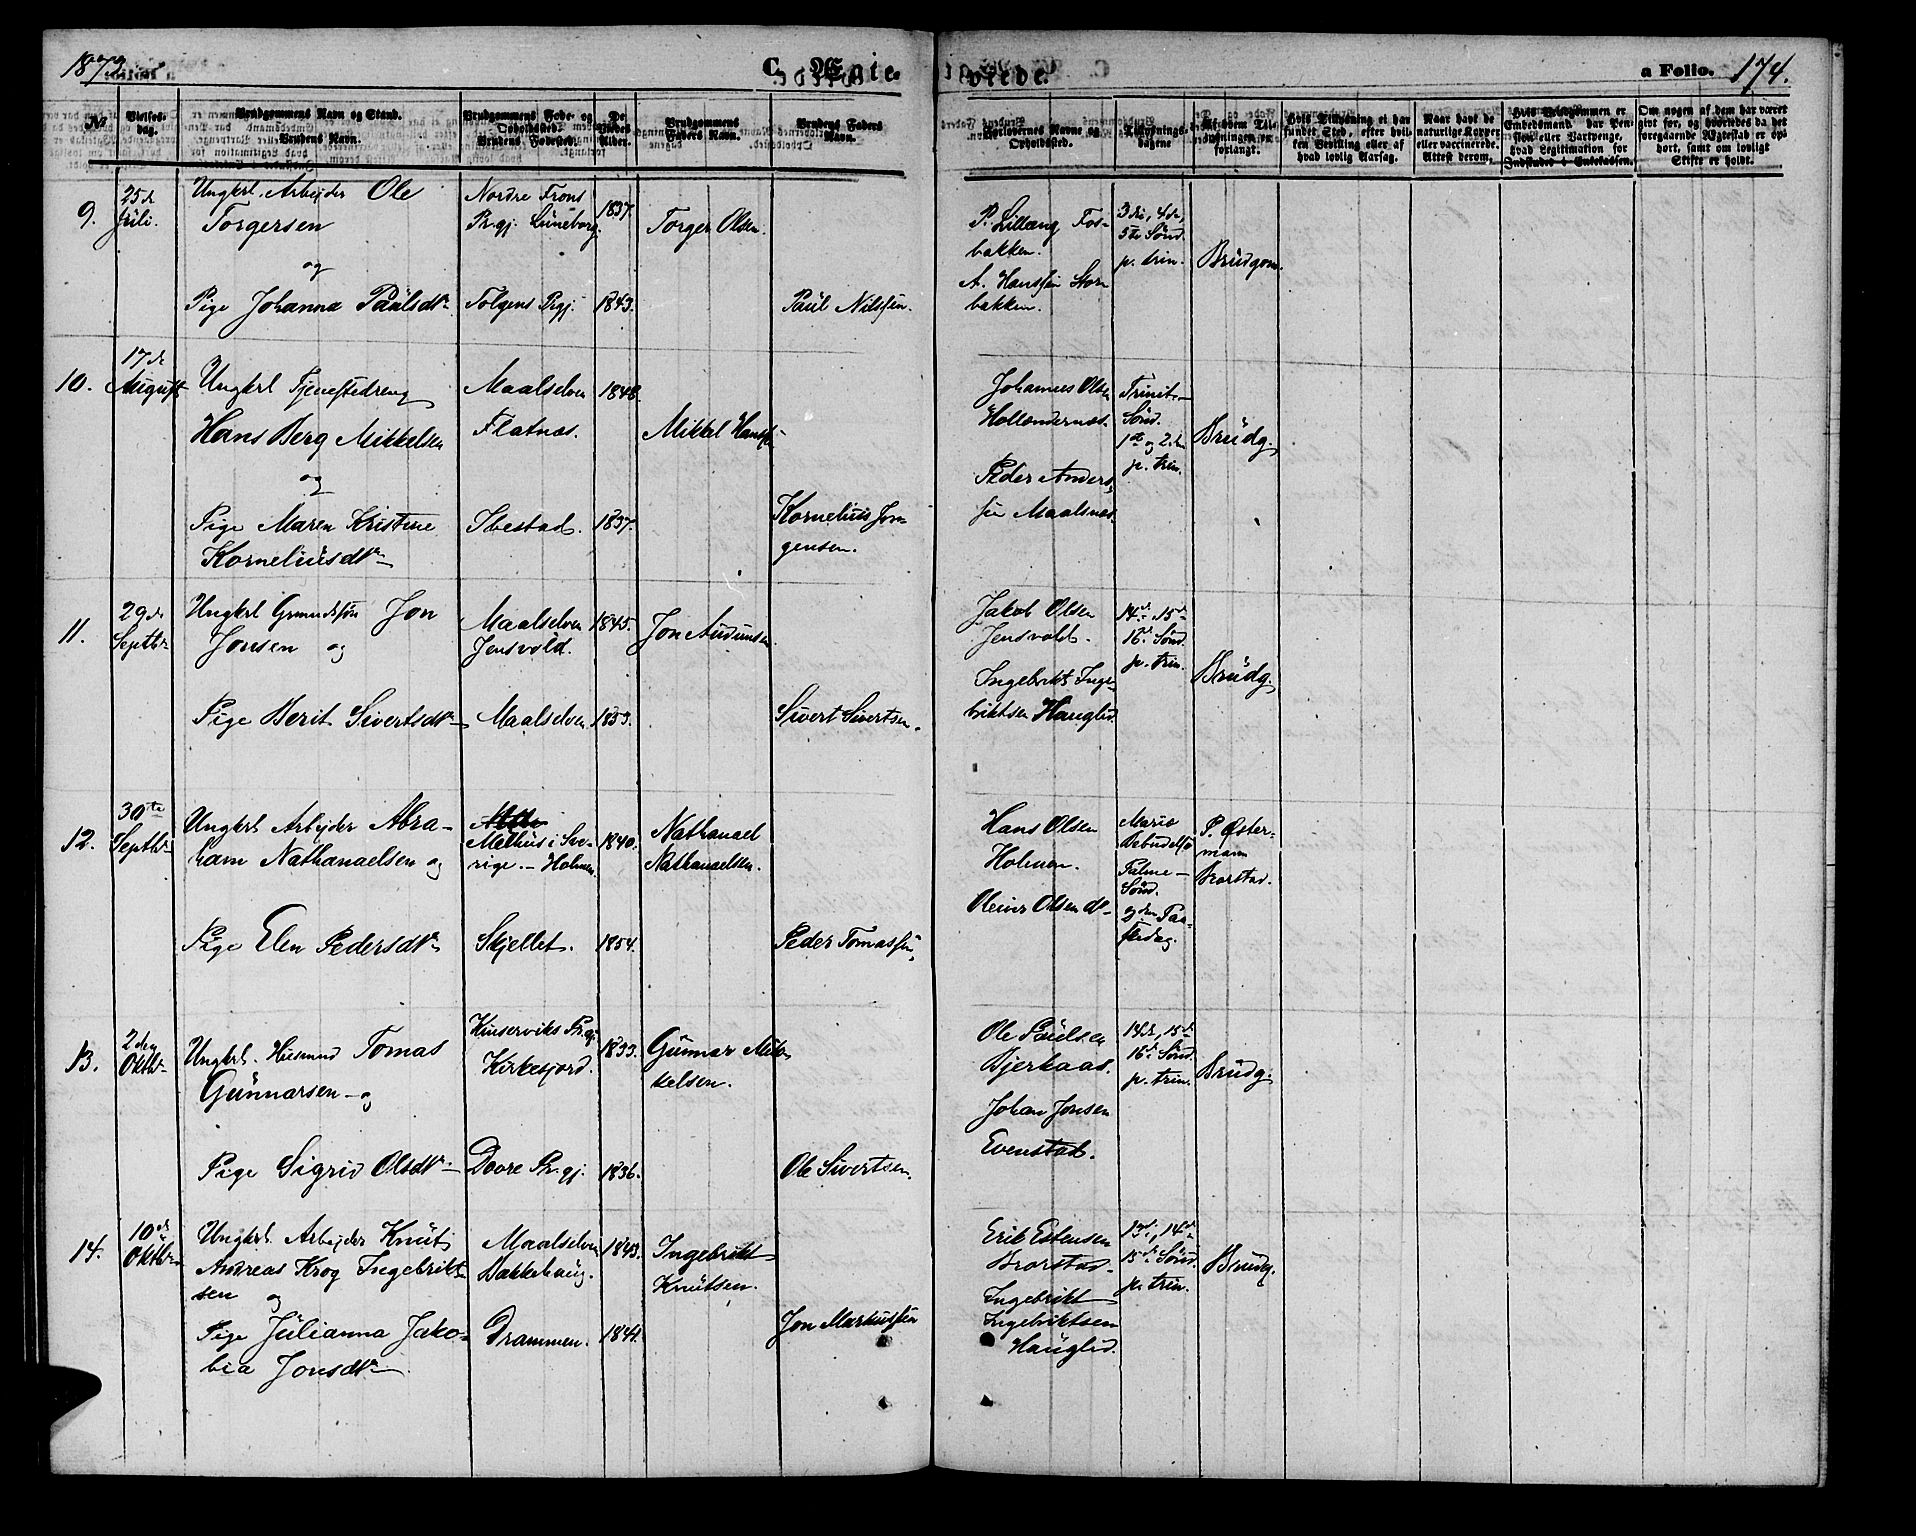 1873.
C. Ægte-
viede.
a Folio. 174.
No
Vielses-
dag.
Brudgommens Navn og Stand.
Brudens Navn.
Brudgommens Føde- og
Opholdssted.
Brudens Fødested.
De
Viedes
Alder.
Brudgommens
Faders Navn.
Brudens Faders
Navn.
Forlovernes Navne og
Opholdssted.
Tillysnings-
dagene
Af hvem Til-
lysningen er
forlangt.
Hvis Tillysning ei har
fundet Sted, efter hvil-
ken Bevilling eller af
hvad lovlig Aarsag.
Naar havt de
naturlige Kopper
eller vaccinerede.
Attest derom,
Hvis Brudgommen er
Embedsmand, har Pen-
sion eller Vartpenge,
hvad Legitimation for
Indskudet i Enkekassen.
Om nogen af dem har været
gift før, og hvorledes da det
foregaaende Ægteskab er op
hørt, samt om lovligt
Skifte er holdt.
9.
25de
Juli.
Ungkrl. Arbejder Ole
Torgersen
og
Pige Johanna Paulsdtr
Nordre Frons
Pr.gj. Luneborg.
Tolgens Prgj.
1837.
1843.
Torger Olsen.
Paul Nilssen.
P. Lillæng Fos-
bakken.
A. Hanssen Stor
bakken.
3die, 4de,
5te Sønd.
p. trin.
Brudgom.
10.
17de
August
Ungkrl Tjenestedreng
Hans Berg Mikkelsen
og
Pige Maren Kristine
Korneliusdtr
Maalselven
Flatnæs.
Ibestad.
1848.
1837.
Mikkel Hanss-
Kornelius Jør-
gensen.
Johannes Olsen
Hollendernæs.
Peder Anders
sen Maalsnæs.
Trinit.
Sønd.
1ste og 2den
p. trin.
Brudg.
11.
29de
Septbr
Ungkrl Gmandssøn Jon
Jonsen og
Pige Berit Sivertsdtr
Maalselven
Jensvold.
Maalselven
1845.
1853.
Jon Audunsen
Sivert Sivertsen.
Jakob Olsen
Jensvold.
Ingebrikt Inge
briktsen Hauglid.
14de 15de
16de Sønd.
p. trin.
Brudg.
12.
30te
Septbr
Ungkrl Arbejder Abra-
ham Nathanaelsen og
Pige Elen Pedersdtr
Malhus i Sve-
rige - Holmen.
Skjellet.
1840.
1854.
Nathanael
Nathanaelsen.
Peder Tomassen
Hans Olsen
Holmen.
Oleiver Olsen do-
Mariæ
Bebudelse
Palme-
Sønd.
2den Paa-
skedag.
P. Øster-
mann
Brorstad.
13.
2den
Oktbr
Ungkrl. Husmand Tomas
Gunnarsen - og
Pige Sigrid Olsdtr
Kinserviks Prgj.
Kirkesjord.
Dovre Pr.gj.
1833.
1836.
Gunnar Mik-
kelsen.
Ole Sivertsen.
Ole Paulsen
Bjerkaas.
Johan Jonsen
Evenstad.
14de, 15de
16de Sønd.
p. trin.
Brudg.
14.
10de
Oktbr
Ungkrl. Arbejder Knut
Andreas Krog Ingebrikt-
sen og
Pige Julianna Jako-
bia Jonsdtr
Maalselven
Bakkehaug.
Drammen.
1843.
1844.
Ingebrikt
Knutsen.
Jon Markussen
Erik Estensen
Brorstad.
Ingebrikt
Ingebriktsen
Hauglid.
13de, 14de
15de Sønd.
p. trin.
Brudg.